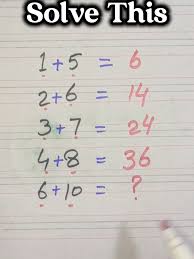 Solve This
1+5 = 6
2+6 = 14
3+7 = 24
4+8 = 36
6+10 = ?